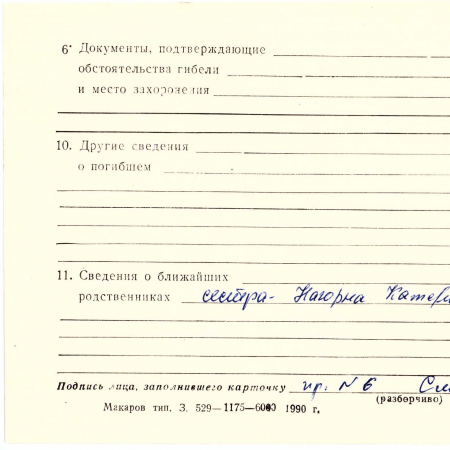 6* Документы, подтверждающие
обстоятельства гибели
и место захоронения
10. Другие сведения
о погибшем
11. Сведения о ближайших
родственниках сестра- Нагорна Катери
Подпись лица, заполнившего карточку пр. N 6
(разборчиво)
Макаров тип. З. 529—1175—6000 1990 г.